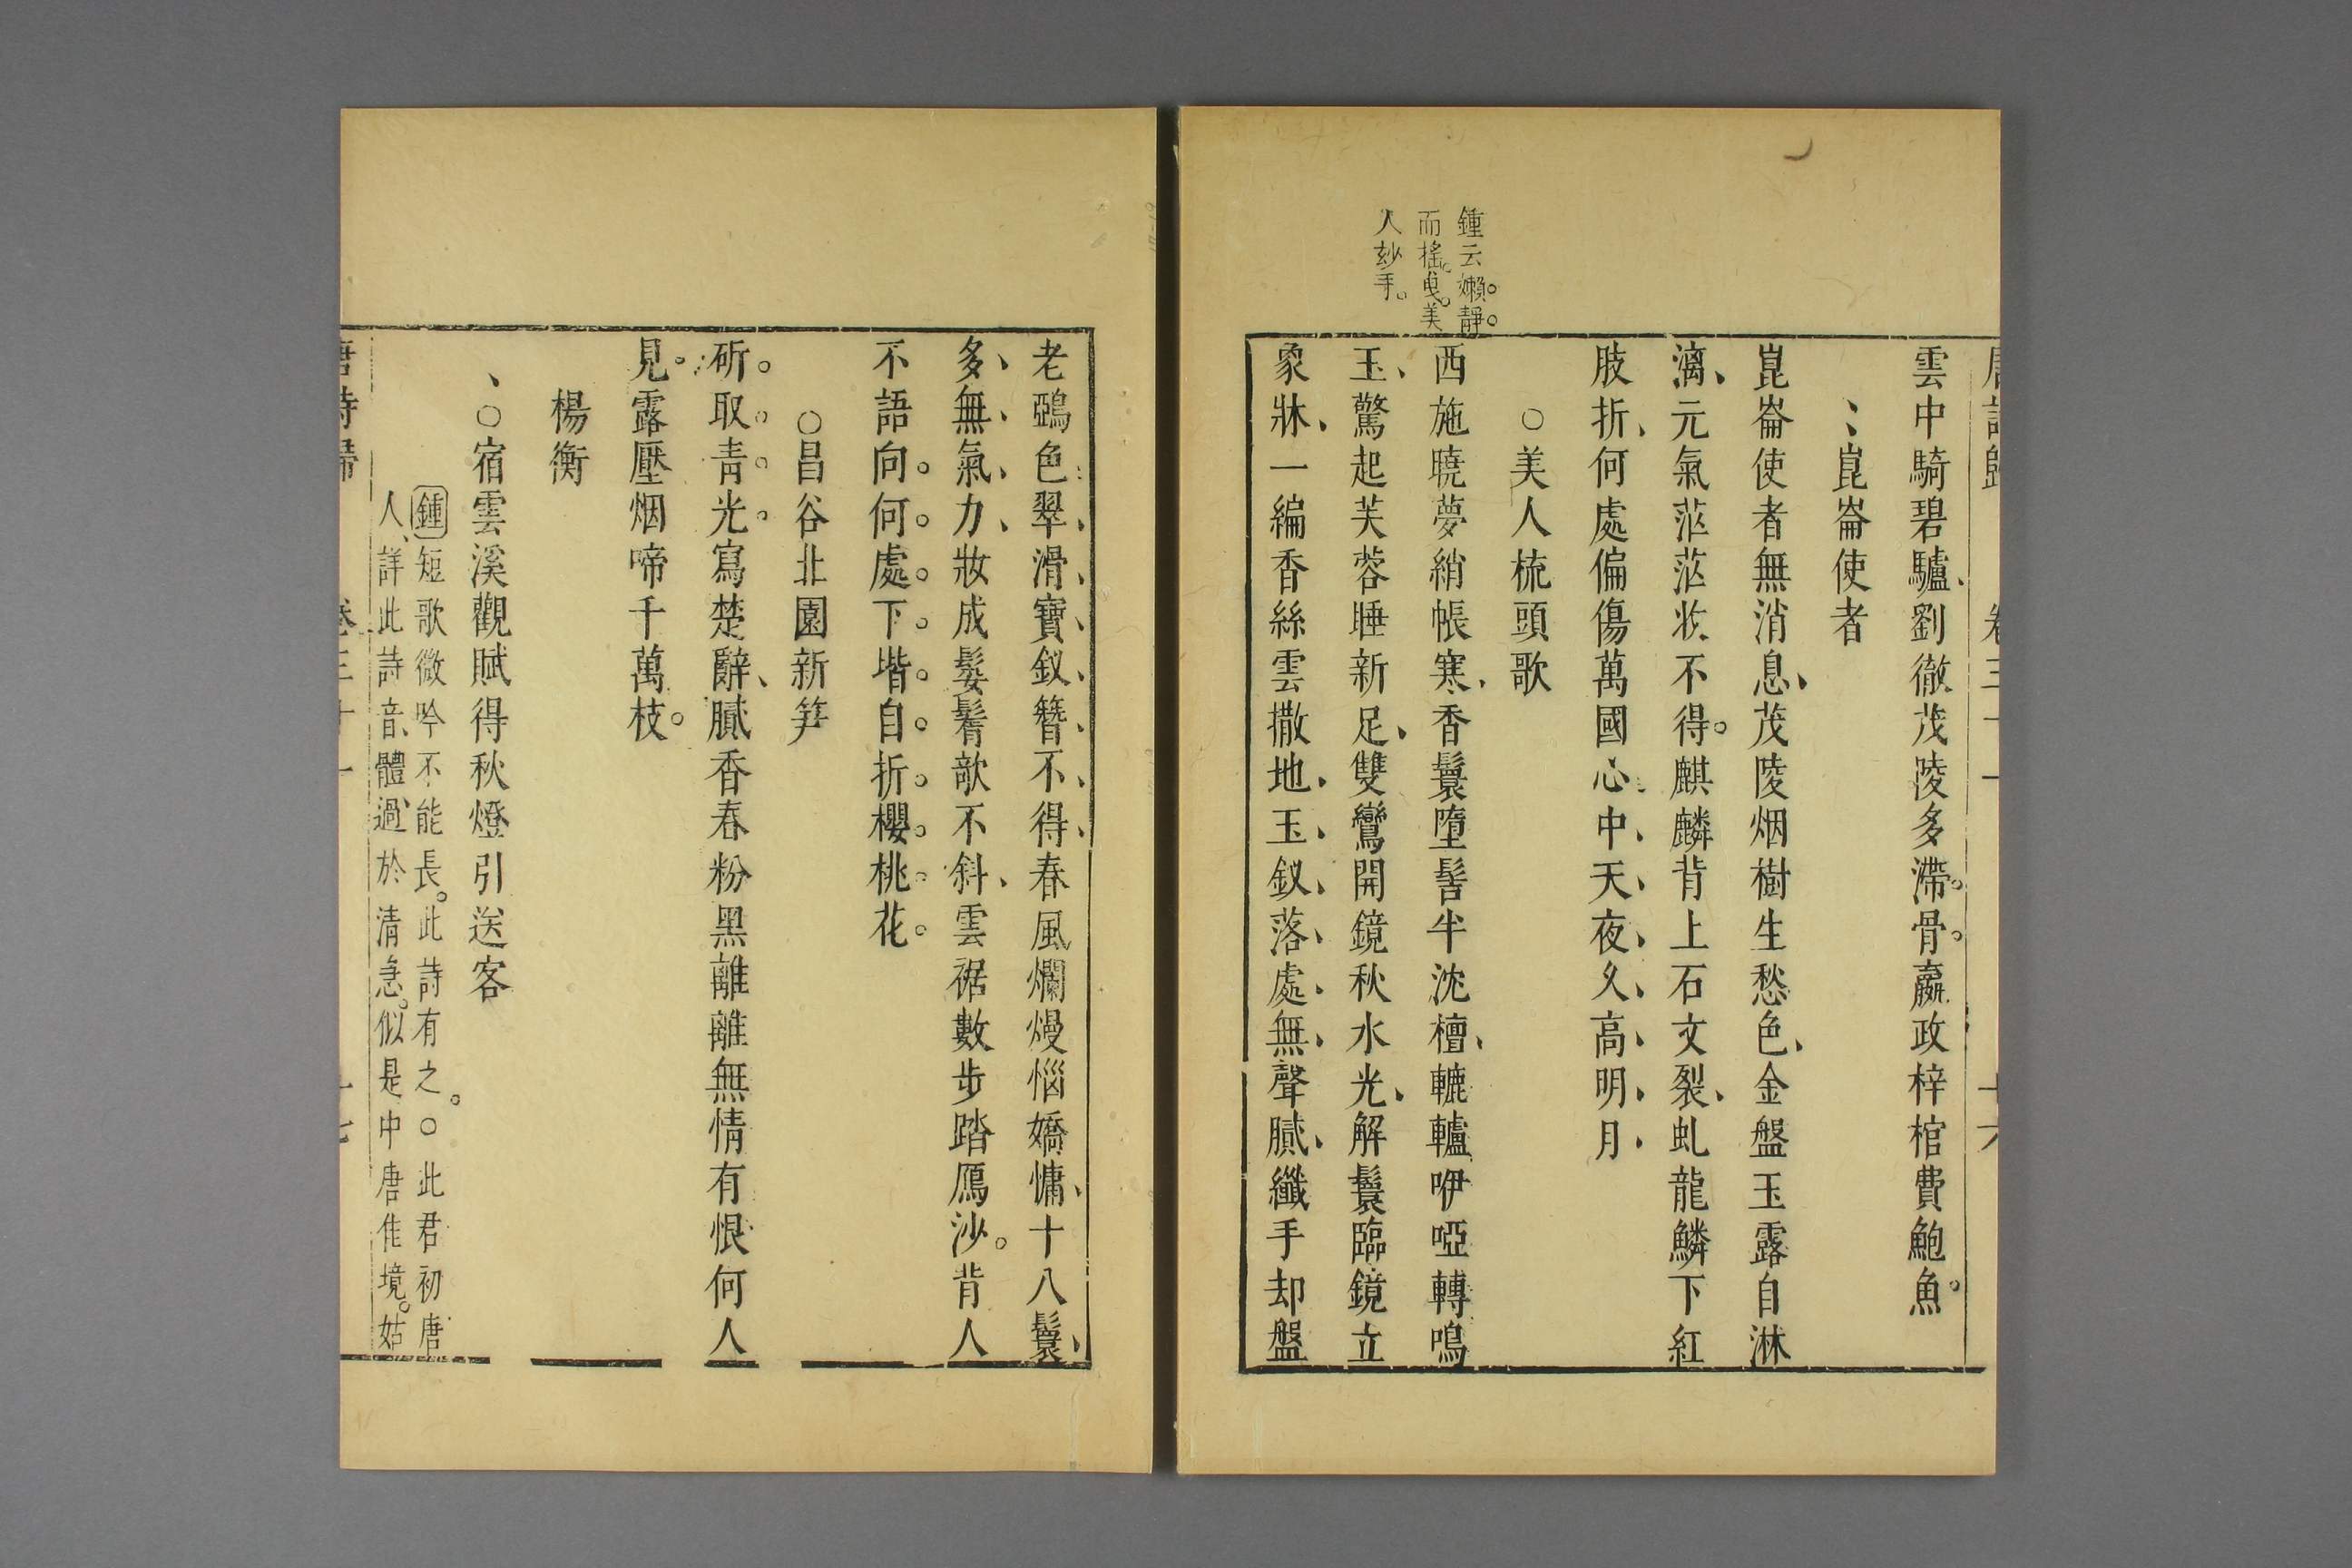 唐詩歸 卷三十一 十六
雲中騎碧驢劉徹茂陵多滯骨嬴政梓棺費鮑魚
崑崙使者
崑崙使者無消息茂陵烟樹生愁色金盤玉露自淋
漓元氣茫茫收不得麒麟背上石文裂虬龍鱗下紅
肢折何處偏傷萬國心中天夜久高明月
○美人梳頭歌
鍾云嬾靜
而樣曳美
人玅手
西施曉夢綃帳寒香鬟墮髻半沈檀轆轤咿啞轉鳴
玉驚起芙蓉睡新足雙鸞開鏡秋水光解鬟臨鏡立
象牀一編香絲雲撒地玉釵落處無聲膩纖手却盤
老鵶色翠滑寶釵簪不得春風爛熳惱嬌慵十八鬟
多無氣力妝成䰀鬌欹不斜雲裾數步踏鴈沙背人
不語向何處下堦自折櫻桃花
○昌谷北園新笋
斫取青光寫楚辭膩香春粉黑離離無情有恨何人
見露壓烟啼千萬枝
楊衡
○宿雲溪觀賦得秋燈引送客
鍾 短歌微吟不能長此詩有之○此君初唐
人詳此詩音體過於清急似是中唐佳境姑
唐詩歸 卷三十一 十七